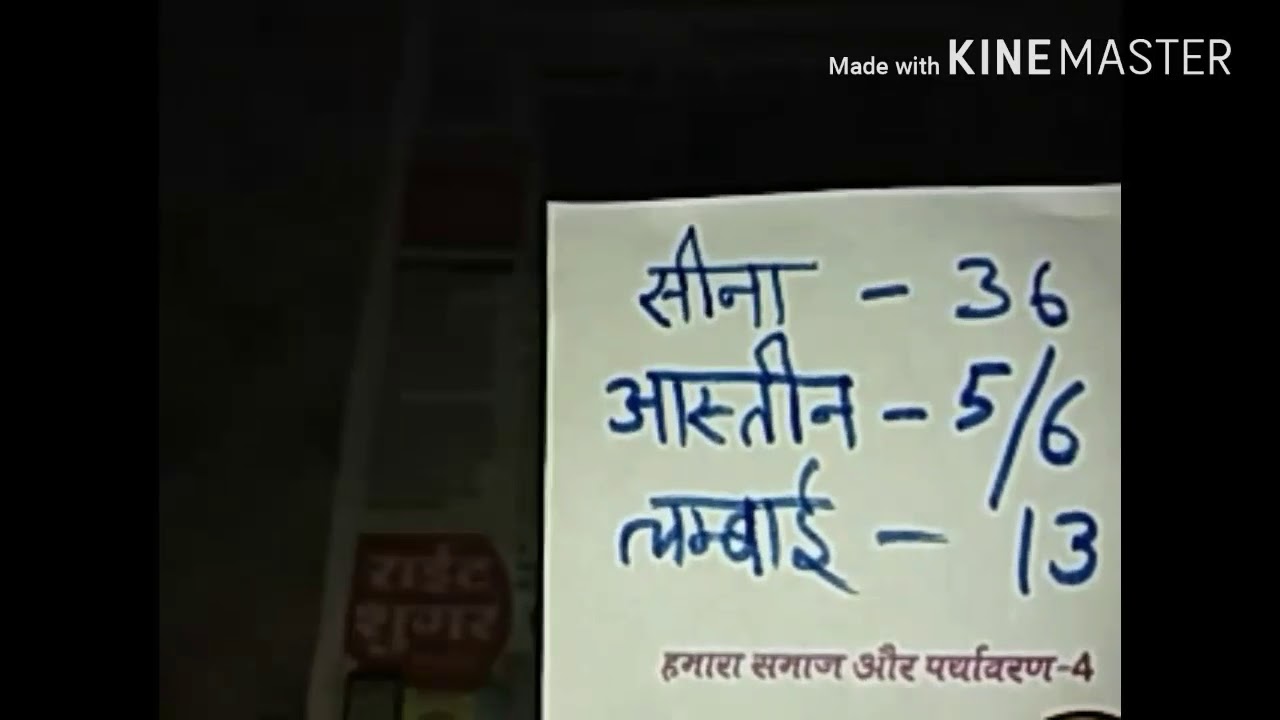 Made with KINEMASTER
सीना - 36
आस्तीन - 5/6
लम्बाई - 13
हमारा समाज और पर्यावरण-4
राईट
शुगर